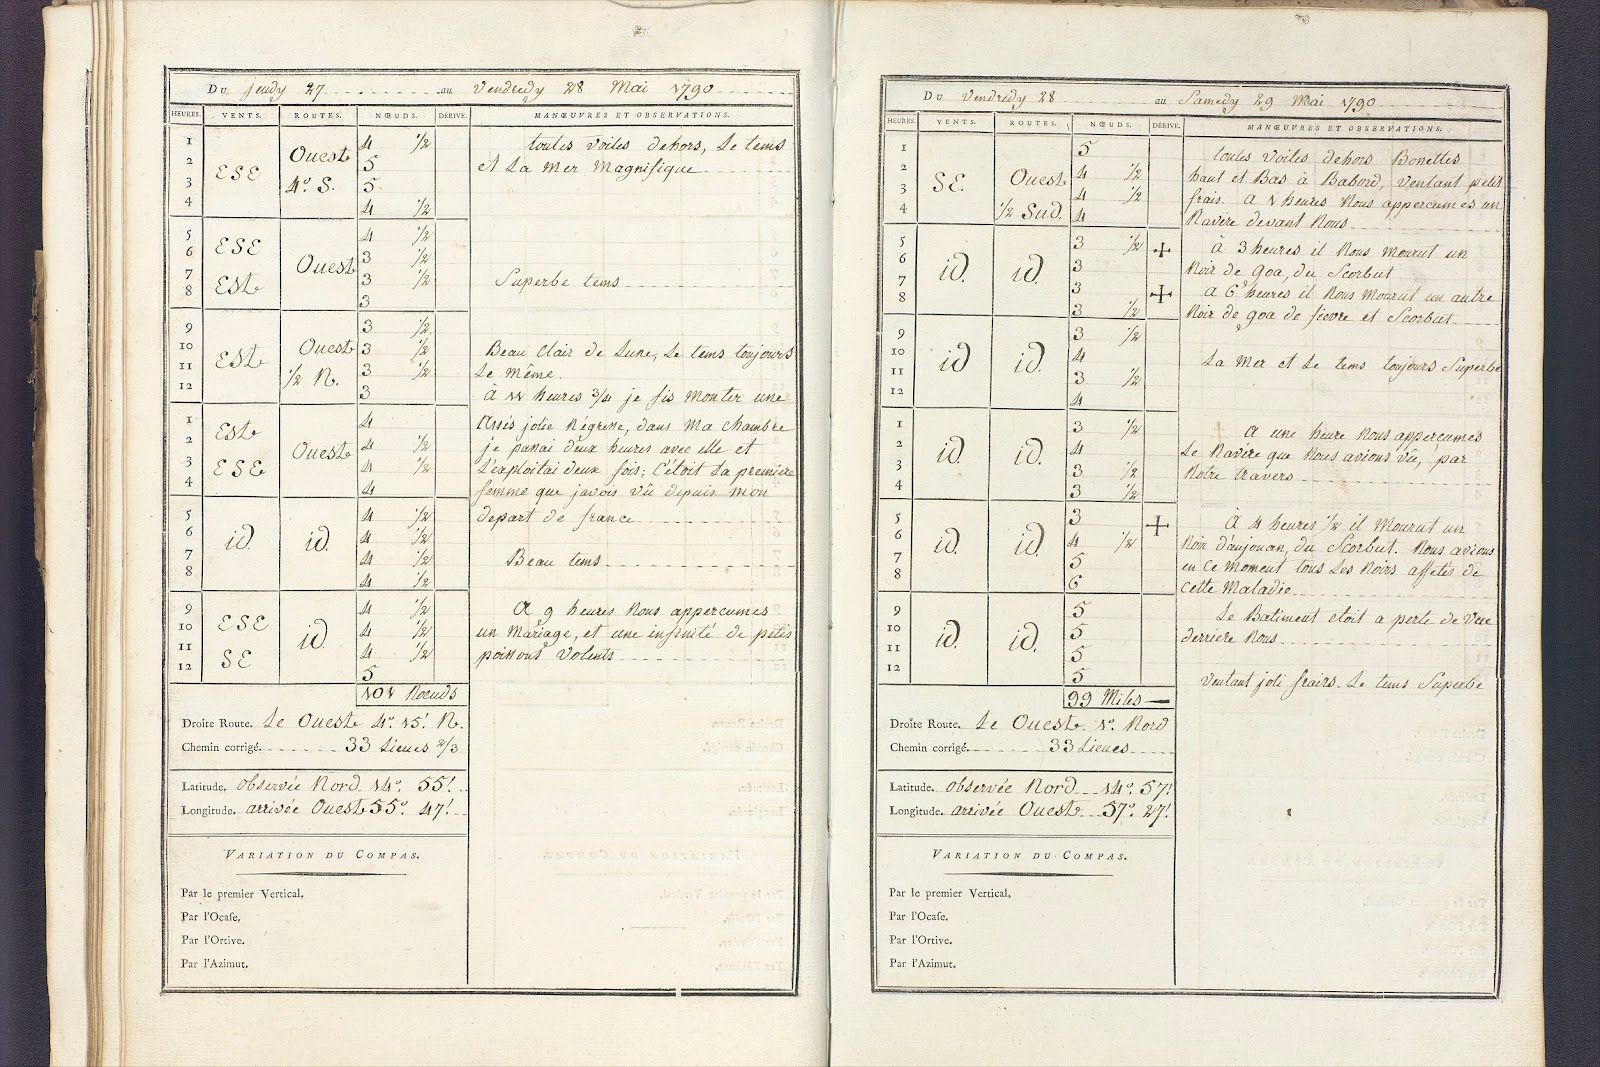 Du jeudy 27 au Vendredy 28 Mai 1790
HEURES. VENTS. ROUTES. NŒUDS. DÉRIVE. MANŒUVRES ET OBSERVATIONS.
1 4 1/2 toutes voiles dehors, Le tems
2 ESE Ouest 5 et La Mer Magnifique
3 4° S. 5
4 4 1/2
5 ESE 4 1/2
6 Ouest 3 1/2
7 Est 3 1/2 Superbe tems
8 3
9 3 1/2
10 Est Ouest 3 1/2 Beau Clair de Lune, Le tems toujours
11 1/2 N. 3 1/2 Le même.
12 3 À 11 heures 3/4 je fis Monter une
1 Est 4 Assés jolie Négresse, dans Ma Chambre
2 Ouest 4 1/2 je passai deux heures avec elle et
3 ESE 4 1/2 L'exploitai deux fois; C'étoit La premiere
4 4 femme que javois vû depuis mon
5 4 1/2 depart de france
6 id. id. 4 1/2
7 4 1/2 Beau tems
8 4 1/2
9 ESE 4 1/2 A 9 heures Nous appercumes
10 id 4 1/2 un Mariage, et une infinité de petis
11 SE 4 1/2 poissons Volents
12 5
101 Nœuds
Droite Route. Le Ouest 4° 15! N.
Chemin corrigé. 33 Lieues 2/3
Latitude. observée Nord 14° 55!
Longitude. arrivée Ouest 55° 47!
VARIATION DU COMPAS.
Par le premier Vertical,
Par l'Ocase,
Par l'Ortive.
Par l'Azimut.
Du Vendredy 28 au Samedy 29 Mai 1790
HEURES. VENTS. ROUTES. NŒUDS. DÉRIVE. MANŒUVRES ET OBSERVATIONS.
1 5 toutes Voiles dehors Bonettes
2 SE. Ouest 4 1/2 haut et Bas à Babord, Ventant petit
3 1/2 Sud. 4 1/2 frais. A 1 heures Nous appercumes un
4 4 Navire devant Nous
5 3 1/2 + à 3 heures il Nous Mourut un
6 id. id. 3 Noir de goa, du Scorbut
7 3 + a 6 heures il Nous Mourut un autre
8 3 1/2 Noir de goa de fievre et Scorbut
9 3 1/2
10 id id. 4 La Mer et Le tems toujours Superbe
11 3 1/2
12 4
1 3 1/2 A une heure Nous appercumes
2 id. id. 4 Le Navire que Nous avions Vû, par
3 3 1/2 Notre travers
4 3 1/2
5 3 + À 4 heures 1/2 il Mourut un
6 id. id. 4 1/2 Noir d'anjouan, du Scorbut. Nous avions
7 5 en Ce Moment tous Les Noirs affetés de
8 6 Cette Maladie
9 5 Le Batiment etoit a perte de Vue
10 id. id. 5 derriere Nous
11 5
12 5 Ventant joli frairs. Le tems Superbe
99 Miles
Droîte Route. Le Ouest. 1° Nord
Chemin corrigé. 33 Lieues
Latitude. observée Nord 14° 57!
Longitude. arrivée Ouest 57° 27!
VARIATION DU COMPAS.
Par le premier Vertical,
Par l'Ocase,
Par l'Ortive.
Par l'Azimut.